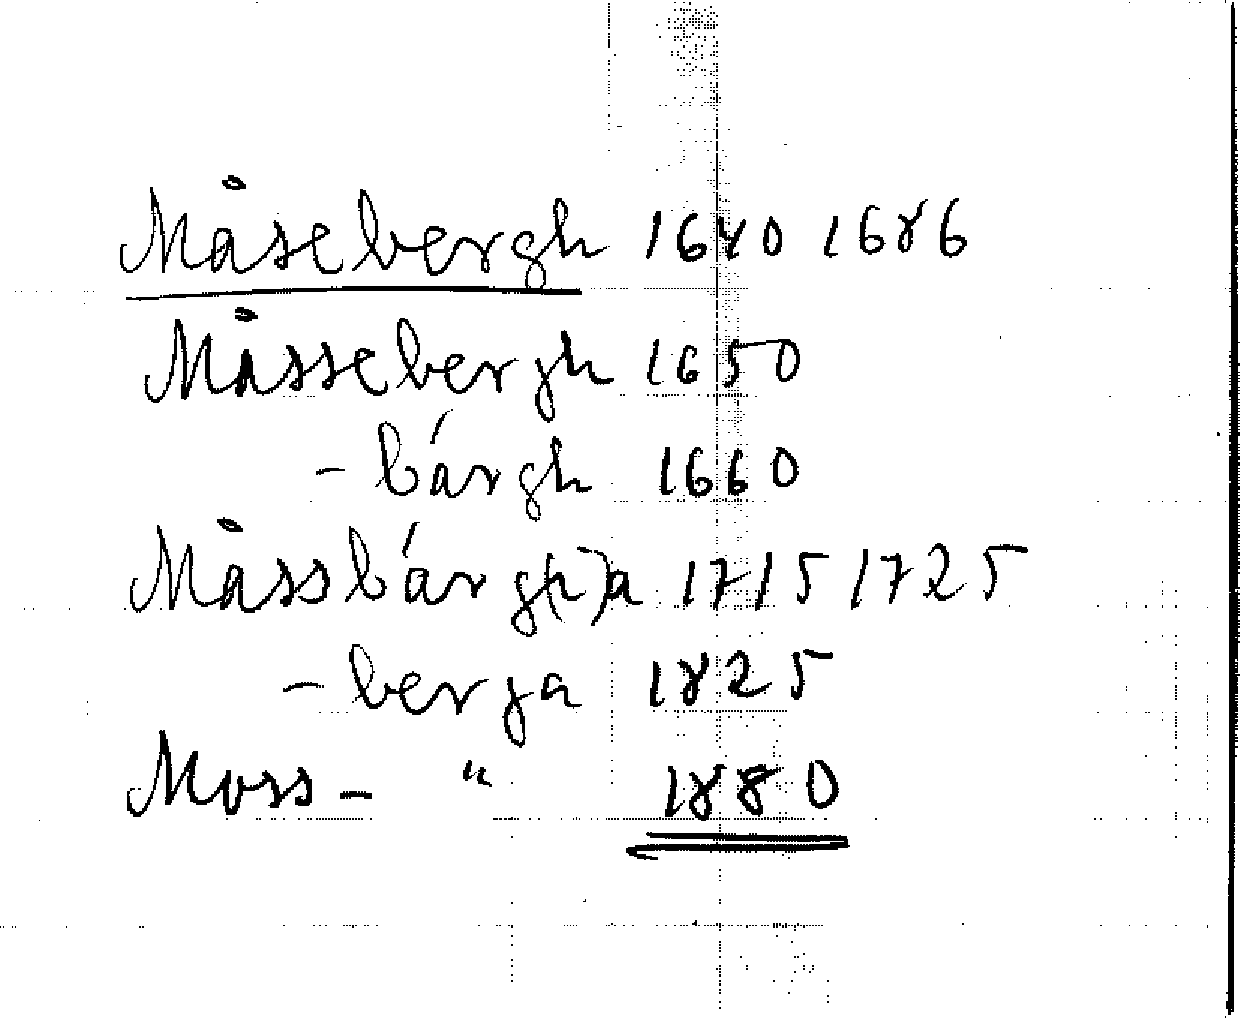 Måsebergh 1640 1686
Måssebergh 1650
- bárgh 1660
Måssbárg(h)a 1715 1725
- berga 1825
Moss - " 1880